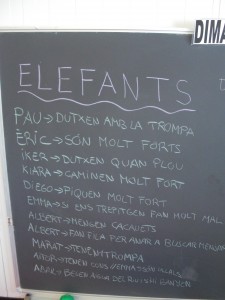 DIMA
ELEFANTS
PAU→DUTXEN AMB LA TROMPA
ÈRIC→SÓN MOLT FORTS
IKER→DUTXEN QUAN PLOU
KIARA→CAMINEN MOLT FORT
DIEGO→PIQUEN MOLT FORT
EMMA→SI ENS TREPITGEN FAN MOLT MAL
ALBERT→MENGEN CACAUETS
ALBERT→FAN FILA PER ANAR A BUSCAR MENJAR
MARAT→TENEN TROMPA
AITOR→TENEN EMMA→SÓN
BEUEN AIGUA DEL RIU